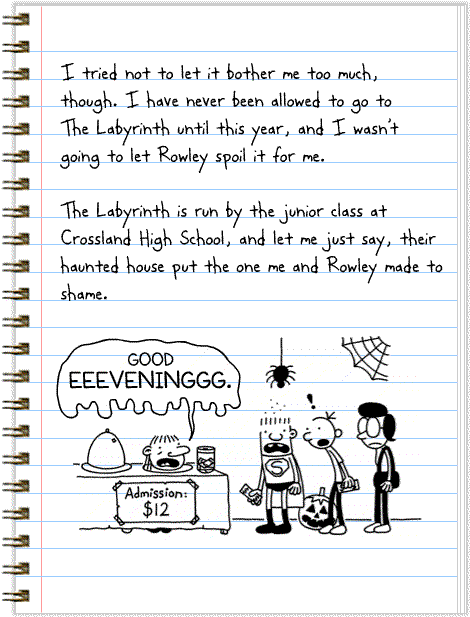 I tried not to let it bother me too much,
though. I have never been allowed to go to
The Labyrinth until this year, and I wasn't
going to let Rowley spoil it for me.
The Labyrinth is run by the junior class at
Crossland High School, and let me just say, their
haunted house put the one me and Rowley made to
shame.
GOOD
EEEVENINGGG.
!
S
Admission:
$12